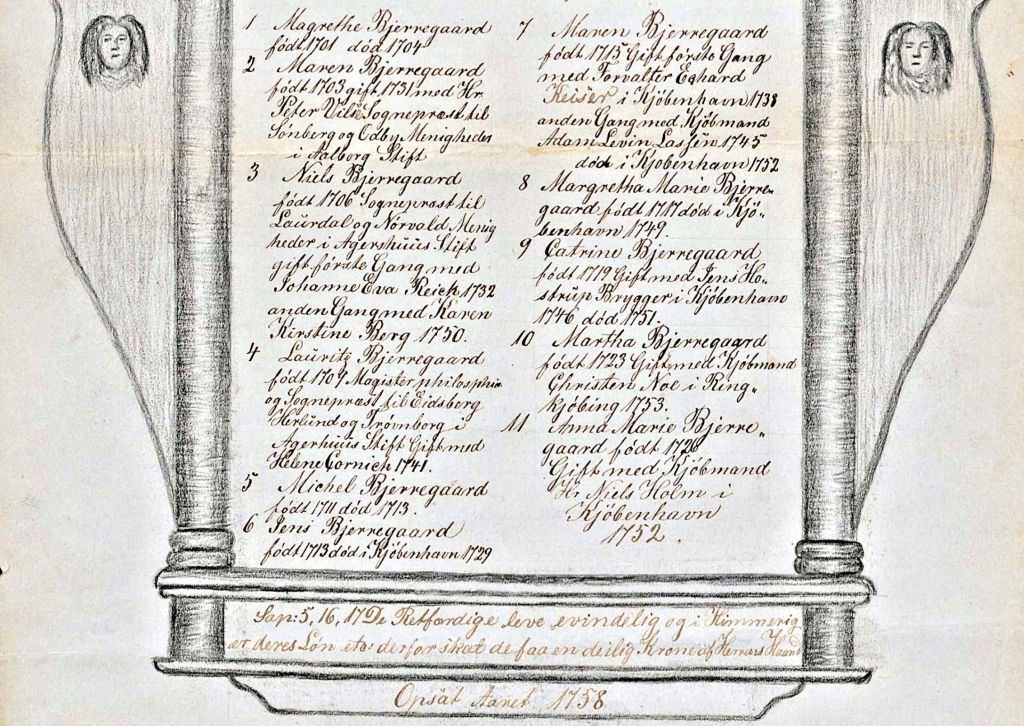 1 Magrethe Bjerregaard
født 1701 død 1704
2 Maren Bjerregaard
født 1703 gift 1731 med Hr.
Peter Vils Sognepræst til
Sønberg og Odby Menigheder
i Aalborg Stift
3 Niels Bjerregaard
født 1706 Sognepræst til
Laurdal og Nörvald Menig
heder i Agershuus Stift
gift förste Gang med
Johanne Eva Reich 1732
anden Gang med Karen
Kirstine Berg 1750.
4 Lauritz Bjerregaard
født 1709 Magister philosophia
og Sognepræst til Eidsberg
Herlund og Trövnborg i
Agerhuus Stift Gift med
Helene Cornich 1741.
5 Michel Bjerregaard
født 1711 død 1713.
6 Jens Bjerregaard
født 1713 død i Kjöbenhavn 1729
7 Maren Bjerregaard
født 1715 Gift förste Gang
med Forvalter Echard
Keiser i Kjöbenhavn 1738
anden Gang med Kjöbmand
Adam Levin Lassen 1745
död i Kjobenhavn 1752
8 Margretha Marie Bjerre-
gaard født 1717 død i Kjö-
benhavn 1749.
9 Catrine Bjerregaard
født 1719 Gift med Jens Ho-
strup Brygger i Kjöbenhavn
1746 død 1751.
10 Martha Bjerregaard
født 1723 Gift med Kjöbmand
Christen Noe i Ring-
kjöbing 1753.
11 Anna Marie Bjerre-
gaard født 1726
Gift med Kjöbmand
Hr. Niels Holm i
Kjöbenhavn
1752.
Sap: 5, 16, 17 De Retfærdige leve evindelig og i Himmerig
er deres Løn etc: derfor skal de faa en deilig Krone af Herrens Haand
Opsat Aaret 1758